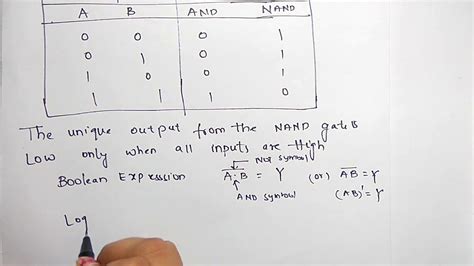 A B AND NAND
0 0 0 1
0 1 0 1
1 0 0 1
1 1 1 0
The unique output from the NAND gate is
Low only when all inputs are High
NOT symbol
Boolean Expression A·B = Y (or) AB = Y
AND symbol (AB)' = Y
Log